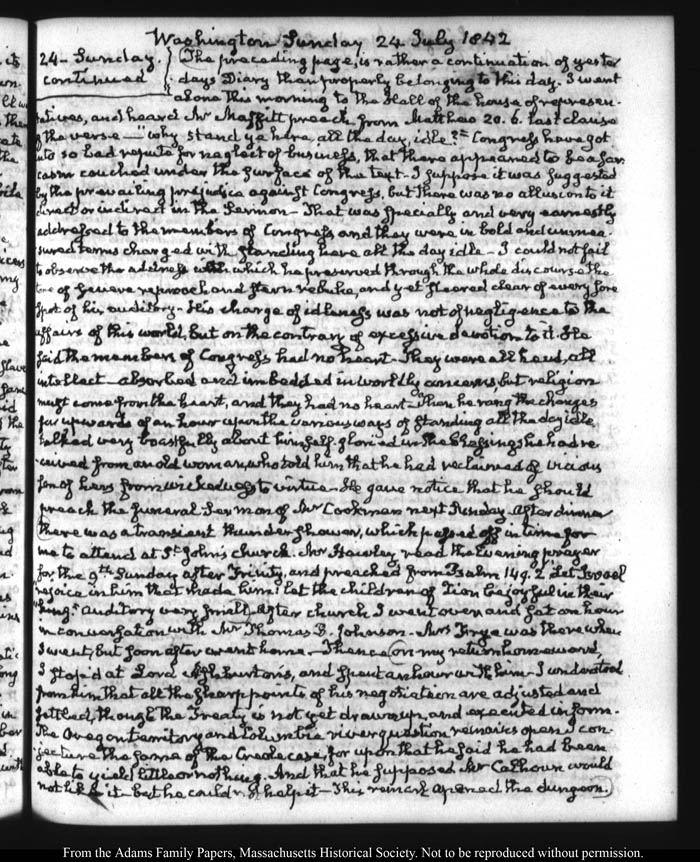 Washington Sunday 24 July 1842
24 - Sunday. The preceding page, is rather a continuation of yester
continued days Diary than properly belonging to this day. I went
alone this morning to the Hall of the house of represen-
tatives, and heard Mr Maffitt preach from Matthew 20. 6. last clause
of the verse — why stand ye here all the day, idle? Congress have got
into so bad repute for neglect of business, that there appeared to be a sar
casm couched under the surface of the text - I suppose it was suggested
by the prevailing prejudice against Congress, but there was no allusion to it
direct or indirect in the Sermon - That was specially and very earnestly
addressed to the members of Congress and they were in bold and unmea-
sured terms charged with standing here all the day idle - I could not fail
to observe the address with which he preserved through the whole discourse the
tone of severe reproach and stern rebuke, and yet steered clear of every sore
spot of his auditory - His charge of idleness was not of negligence to the
affairs of this world, but on the contrary of excessive devotion to it. He
said the members of Congress had no heart - They were all head, all
intellect - absorbed and imbedded in worldly concerns, but religion
must come from the heart, and they had no heart - Then he rang the changes
for upwards of an hour upon the various ways of standing all the day idle,
talked very boastfully about himself, gloried in the blessings he had re
ceived from an old woman, who told him that he had reclaimed a vicious
son of hers from wickedness to virtue - He gave notice that he should
preach the funeral Sermon of Mr Cookman next Sunday. After dinner
there was a transient thunder shower, which passed off in time for
me to attend at St John's church. Mr Hawley read the Evening prayer
for the 9th Sunday after Trinity, and preached from Psalm 149. 2. Let Israel
rejoice in him that made him: let the children of Zion be joyful in their
king. Auditory very small. After church I went over and sat an hour
in conversation with Mr Thomas B. Johnson - Mrs Frye was there when
I went, but soon after went home - Thence (on my return homeward,
I stop'd at Lord Ashburton's, and spent an hour with him - I understood
from him that all the sharp points of his negotiation are adjusted and
settled, though the Treaty is not yet drawn up, and executed in form.
The Oregon territory and Columbia river question remains open. I con-
jecture the same of the Creole case, for upon that he said he had been
able to yield little or nothing. And that he supposed Mr Calhoun would
not like it - but he could not help it - This remark opened the dungeon.)
From the Adams Family Papers, Massachusetts Historical Society. Not to be reproduced without permission.